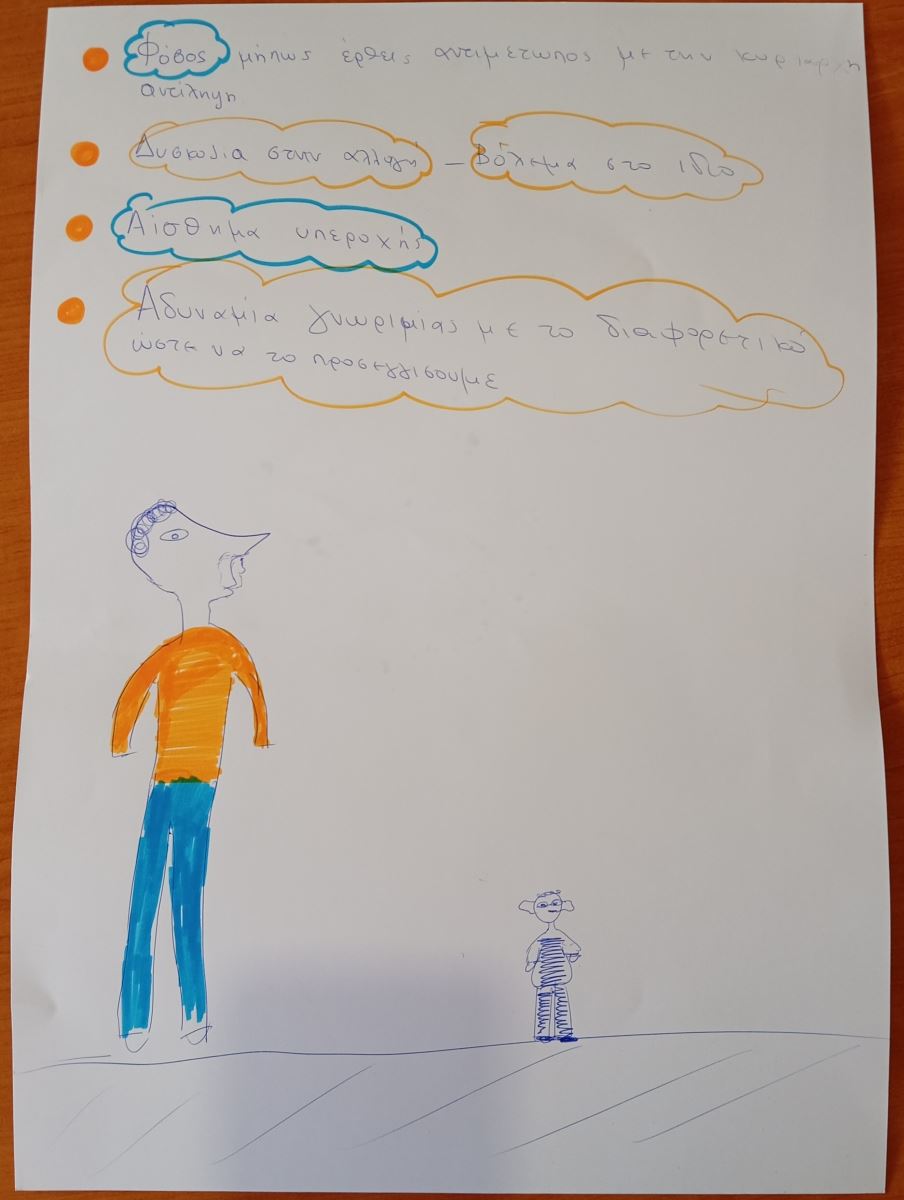 Φόβος μήπως έρθεις αντιμέτωπος με την κυριαρχη
αντιληψη
Δυσκολια στην αλλαγή – Βόλεμα στο ιδιο
Αίσθημα υπεροχής
Αδυναμία γνωριμίας με το διαφορετικό
ώστε να το προσεγγισουμε